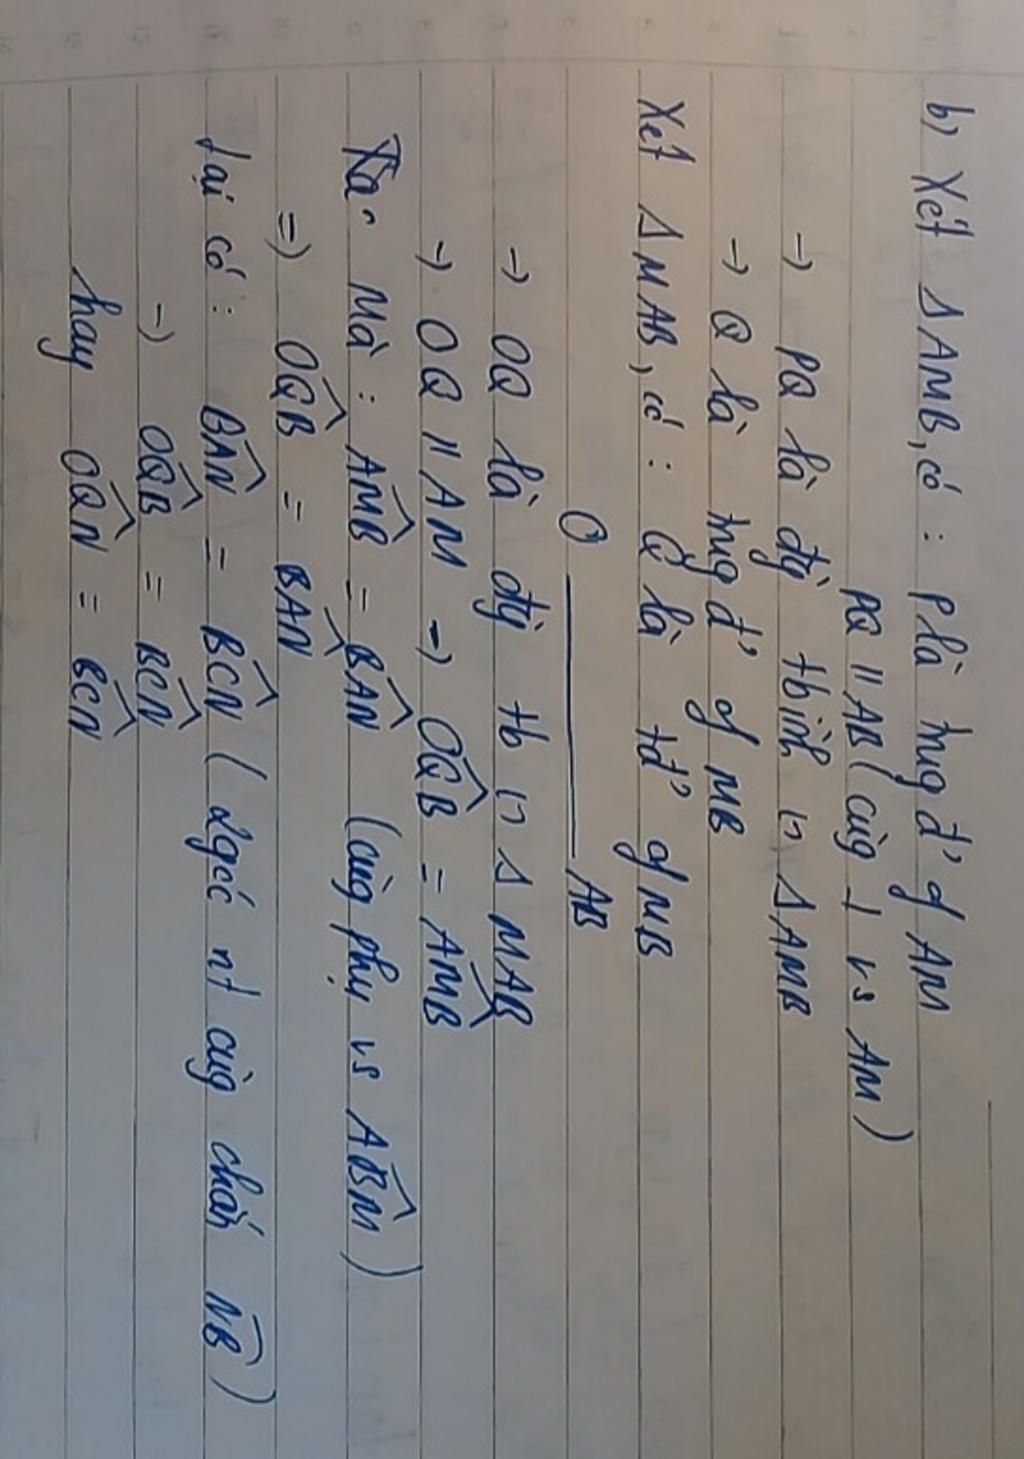 b) Xét Δ AMB, có : P là trug đ' of AM
PQ // AB ( cùg ⊥ vs AM )
→ PQ là đg̀ tbình in Δ AMB
→ Q là trug đ' of MB
Xét Δ MAB, có : Q là tđ' of MB
O ——— AB
→ OQ là đg̀ tb in Δ MAB
→ OQ // AM → OQ̂B = AM̂B
Mà : AM̂B = BÂN (cùg phụ vs AB̂M )
=> OQ̂B = BÂN
Lại có : BÂN = BĈN ( 2góc nt cùg chắn NB )
→ OQ̂B = BĈN
hay OQ̂N = BĈN